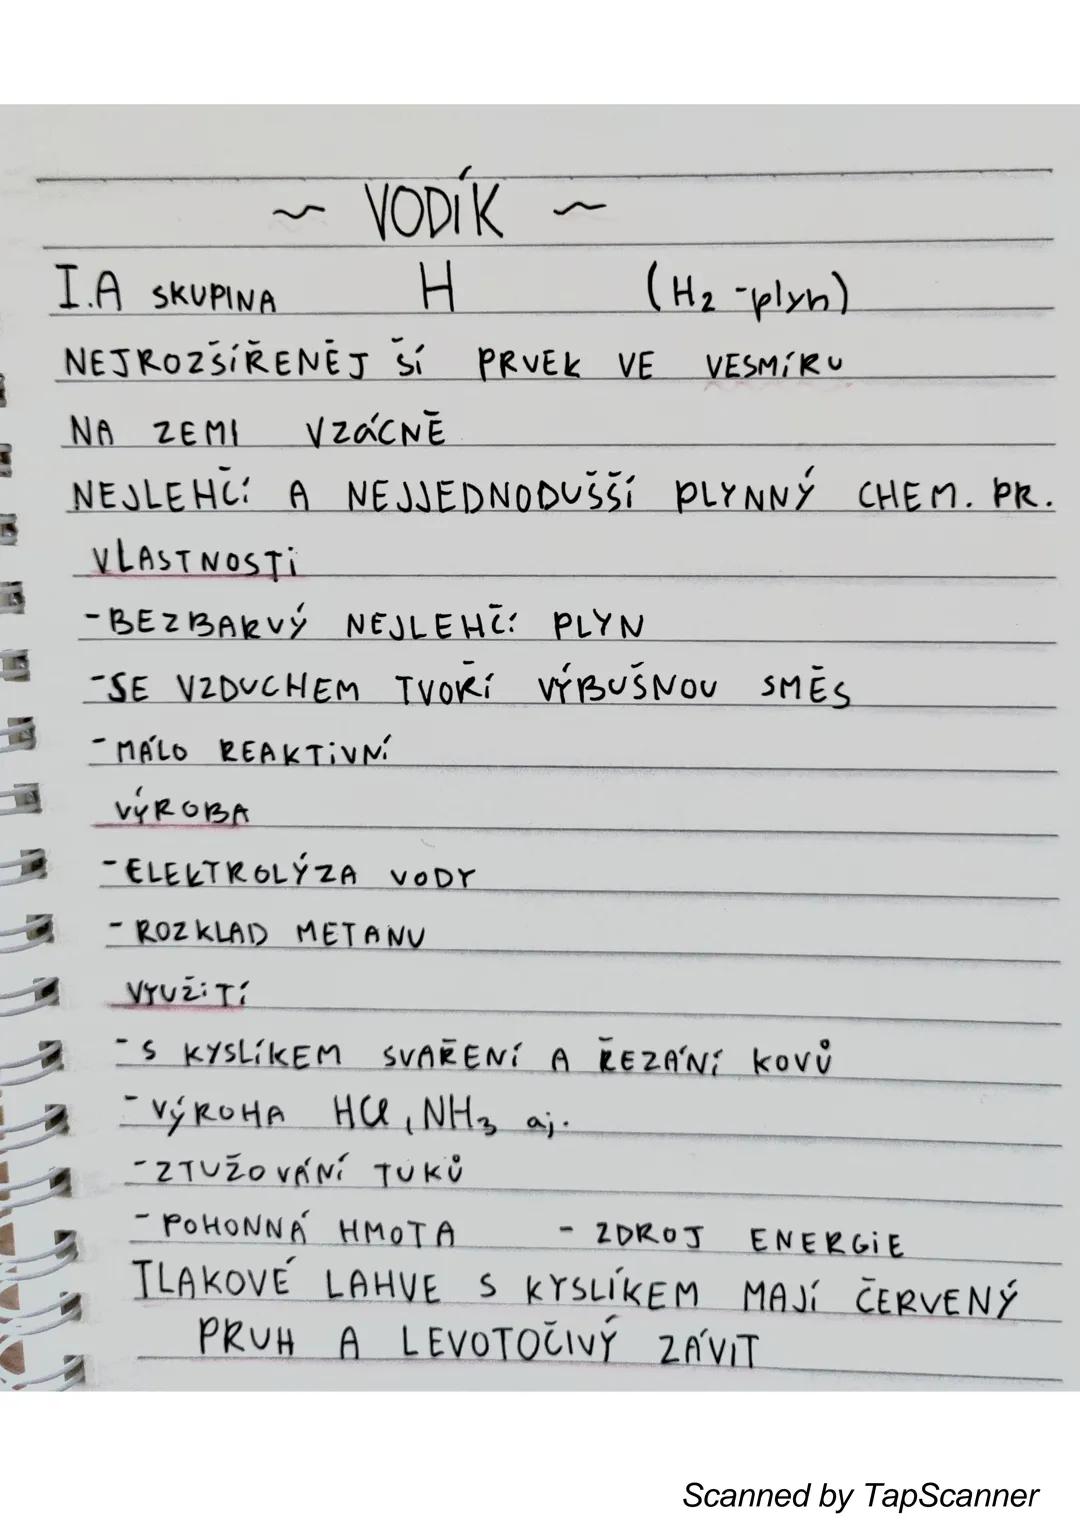 ~ VODÍK ~
I.A SKUPINA H (H2 - plyn)
NEJROZŠÍŘENĚJŠÍ PRVEK VE VESMÍRU
NA ZEMI VZÁCNĚ
NEJLEHČÍ A NEJJEDNODUŠŠÍ PLYNNÝ CHEM. PR.
VLASTNOSTI
- BEZBARVÝ NEJLEHČÍ PLYN
- SE VZDUCHEM TVOŘÍ VÝBUŠNOU SMĚS
- MÁLO REAKTIVNÍ
VÝROBA
- ELEKTROLÝZA VODY
- ROZKLAD METANU
VYUŽITÍ
- S KYSLÍKEM SVAŘENÍ A ŘEZÁNÍ KOVŮ
- VÝROHA HCl, NH3 aj.
- ZTUŽOVÁNÍ TUKŮ
- POHONNÁ HMOTA - ZDROJ ENERGIE
TLAKOVÉ LAHVE S KYSLÍKEM MAJÍ ČERVENÝ
PRUH A LEVOTOČIVÝ ZÁVIT
Scanned by TapScanner